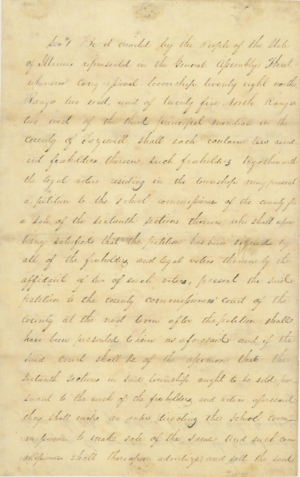 Sec 1 Be it enacted by the People of the State
of Illinois represented in the General Assembly, That
whenever Congressional township twenty eight north
Range two west, and of twenty five North Range
two west of the third principal meridian in the
County of Tazewell shall each contain
freeholders therein such freeholders, together with
the legal voters residing in the township may present
a petition to the school commissioner of the county for
a sale of the sixteenth sections therein who shall upon
being satisfied that the petition has been signed by
all of the freeholders, and legal voters therein by the
affidavit of two of such voters, present the said
petition to the county commissioners court of the
county at the next term after the petition shall
have been presented to him as aforesaid and if the
said court shall be of the opinion that the
sixteenth sections in said township ought to be sold, pur
suant to the wish of the freeholders, and voters aforesaid
they shall make an order directing the school comm
issioner to make sale of the same and such com
missioner shall thereupon advertise, and sell the said